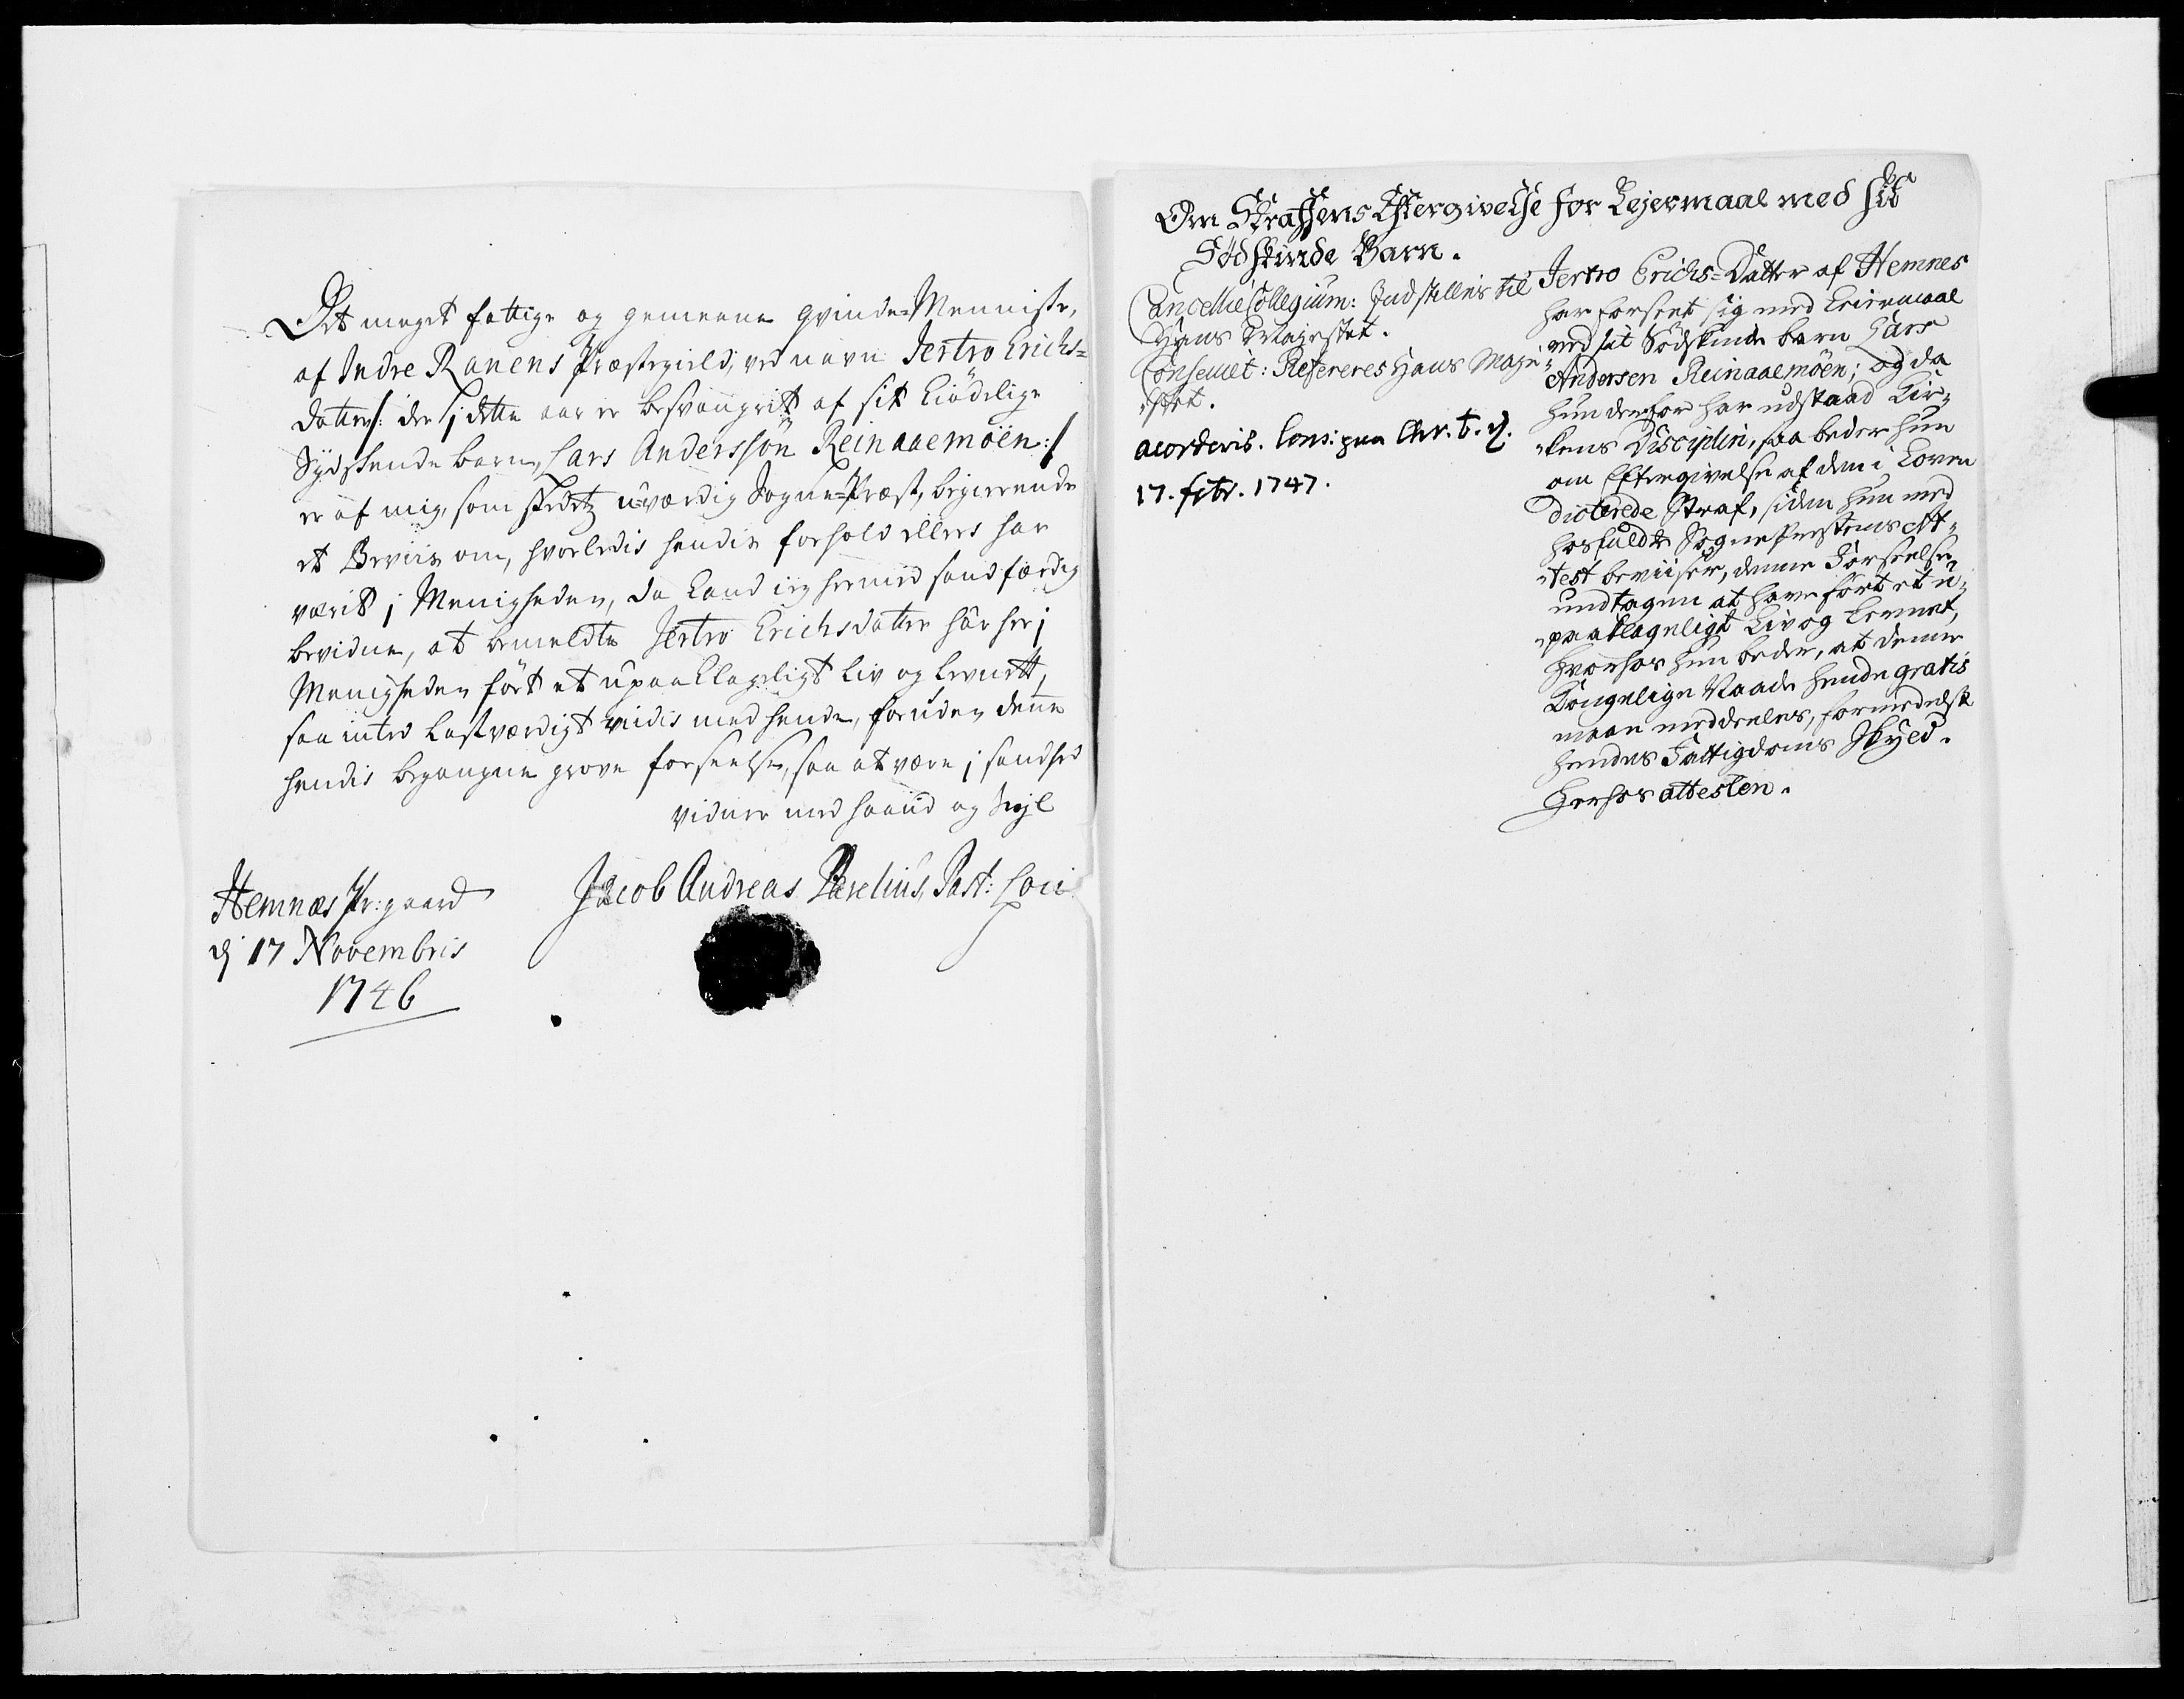 Det meget fattige og gemeene qvinde-Menniske,
af Indre Ranens Præstegield, ved navn Jertro Erichs=
datter /: der i dette aar er besvangrit af sit kiödelige
Sydskende barn, Lars Anderssön Reinaaemöen :/
er af mig, som stedetz u-værdig Sogne-Præst, begierende
et Beviis om, hvorledis hendis forhold ellers har
værit i Menigheden, da kand ieg hermed sandfærdig
bevidne, at bemeldte Jertro Erichsdatter har her i
Menigheden fört et upaaklageligt Liv og Levnett,
saa intet Lastværdigt vidis med hende, foruden denne
hendis begangne grove forseelse, saa at være i sandhed
vidner med haand og Segl
Hemnæs Pr: gaard
dj 17 Novembris
1746
Jacob Andreas Parelius, Past: Loci
Om Straffens Eftergivelse for Lejermaal med sit
Södskinde Barn.
Cancellie Collegium: Indstilles til
Hans Majestet.
Conseillet: Refereres Hans Maje-
stet.
acorderis. Cons: paa Chr. b. d.
17. febr. 1747.
Jertro Erichs-Datter af Hemnes
har forseet sig med Leiermaal
med sit Södskinde barn Lars
Andersen Reinaaemöen; og da
hun derfor har udstaad Kir-
kens Disciplin, saa beder hun
om Eftergivelse af den i Loven
dicterede Straf, siden hun med
hosfuldte Sognepræstens Att-
test beviiser, denne Forseelse
undtagen at have fört et u-
paaklageligt Liv og Levnet,
hvorhos hun beder, at denne
Kongelige Naade hende gratis
maae meddeeles, formedelst
hendes Fattigdoms Skyld.
Herhos attesten.